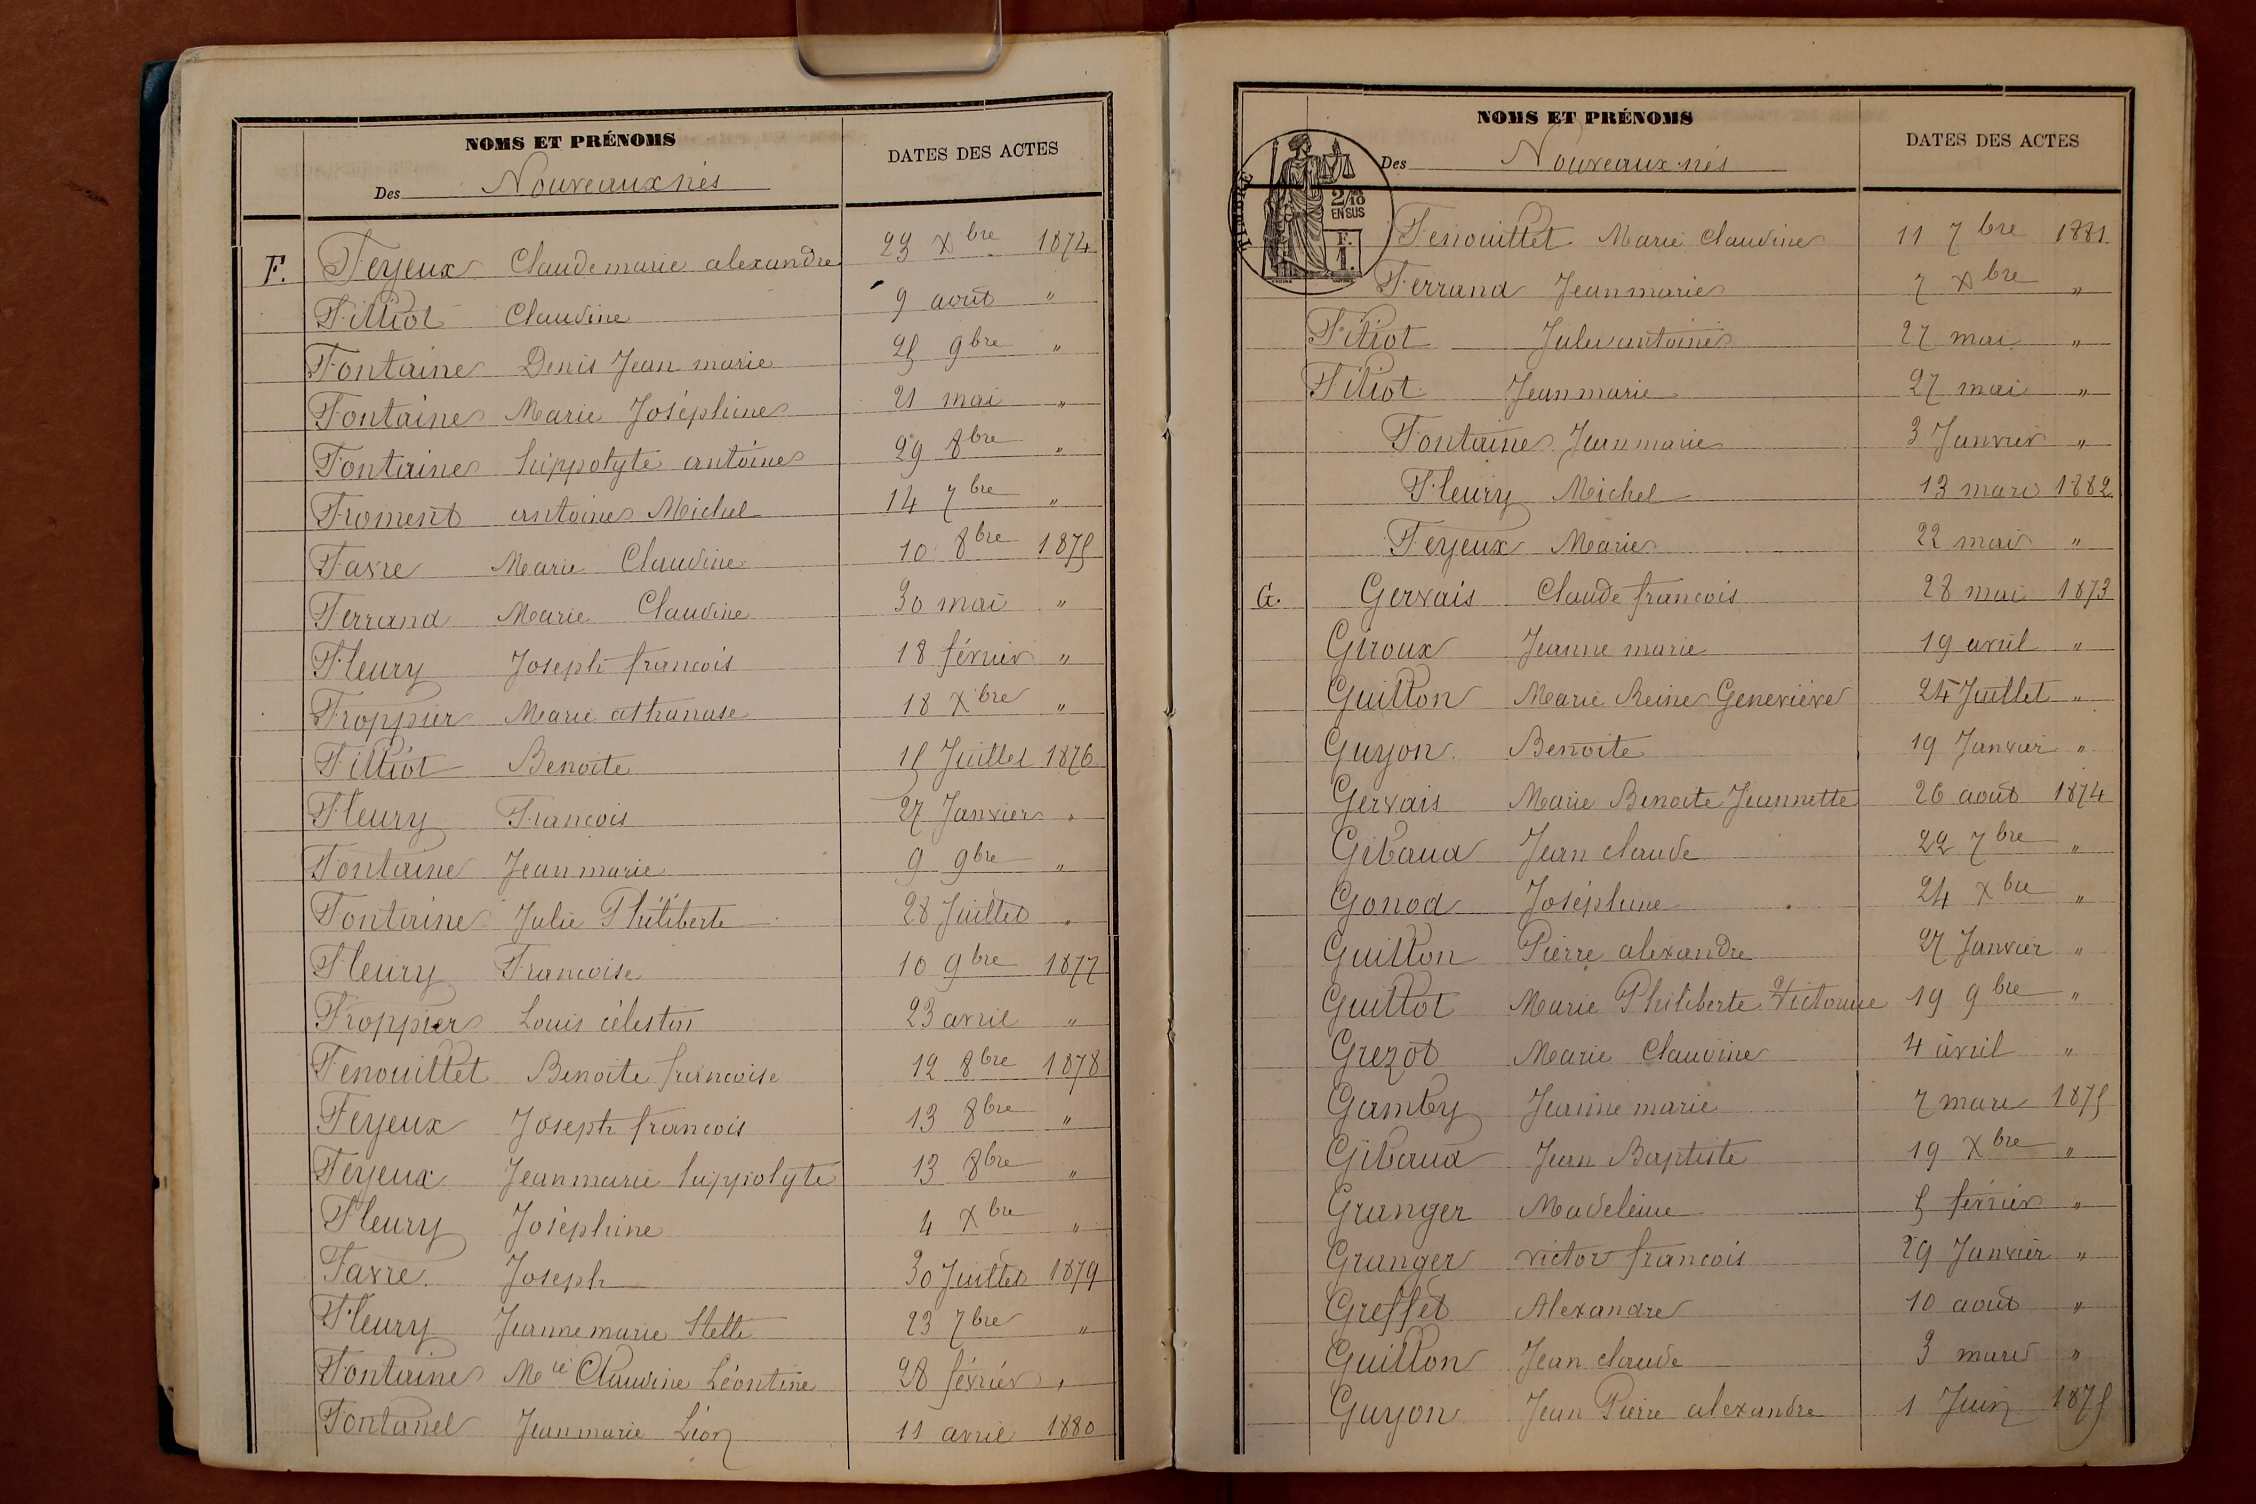 NOMS ET PRÉNOMS
DATES DES ACTES
Des Nouveaux nés
F. Feyeux Claude marie alexandre 23 Xbre 1874
Filliot Claudine 9 août "
Fontaine Denis Jean marie 25 9bre "
Fontaine Marie Joséphine 21 mai "
Fontaine hippolyte antoine 29 8bre "
Froment antoine Michel 14 7bre "
Favre Marie Claudine 10 8bre 1875
Ferrand Marie Claudine 30 mai "
Fleury Joseph françois 18 février "
Froppier Marie athanase 18 Xbre "
Filliot Benoite 15 Juillet 1876
Fleury François 27 Janvier "
Fontaine Jean marie 9 9bre "
Fontaine Julie Philiberte 28 Juillet "
Fleury Françoise 10 9bre 1877
Froppier Louis célestin 23 avril "
Fenouillet Benoite françoise 12 8bre 1878
Feyeux Joseph françois 13 8bre "
Feyeux Jean marie hippolyte 13 8bre "
Fleury Joséphine 4 Xbre "
Favre Joseph 30 Juillet 1879
Fleury Jeanne marie 23 7bre "
Fontaine Mie Claudine Léontine 28 février "
Fontanel Jean marie Léon 11 avril 1880
NOMS ET PRÉNOMS
DATES DES ACTES
Des Nouveaux nés
TIMBRE
2/10
EN SUS
F.
1.
Fenouillet Marie Claudine 11 7bre 1881
Ferrand Jean marie 7 Xbre "
Filiot Jules antoine 27 mai "
Filiot Jean marie 27 mai "
Fontaine Jean marie 3 Janvier "
Fleury Michel 13 mars 1882
Feyeux Marie 22 mai "
G. Gervais Claude françois 28 mai 1873
Giroux Jeanne marie 19 avril "
Guillon Marie Reine Geneviève 24 Juillet "
Guyon Benoite 19 Janvier "
Gervais Marie Benoite Jeannette 26 août 1874
Gibaud Jean claude 22 7bre "
Gonod Joséphine 24 Xbre "
Guillon Pierre alexandre 27 Janvier "
Guillot Marie Philiberte Victorine 19 9bre "
Grezot Marie Claudine 4 avril "
Gamby Jeanne marie 7 mars 1875
Gibaud Jean Baptiste 19 Xbre "
Granger Madeleine 5 février "
Granger victor françois 29 Janvier "
Greffet Alexandre 10 août "
Guillon Jean claude 3 mars "
Guyon Jean Pierre alexandre 1 Juin 1875